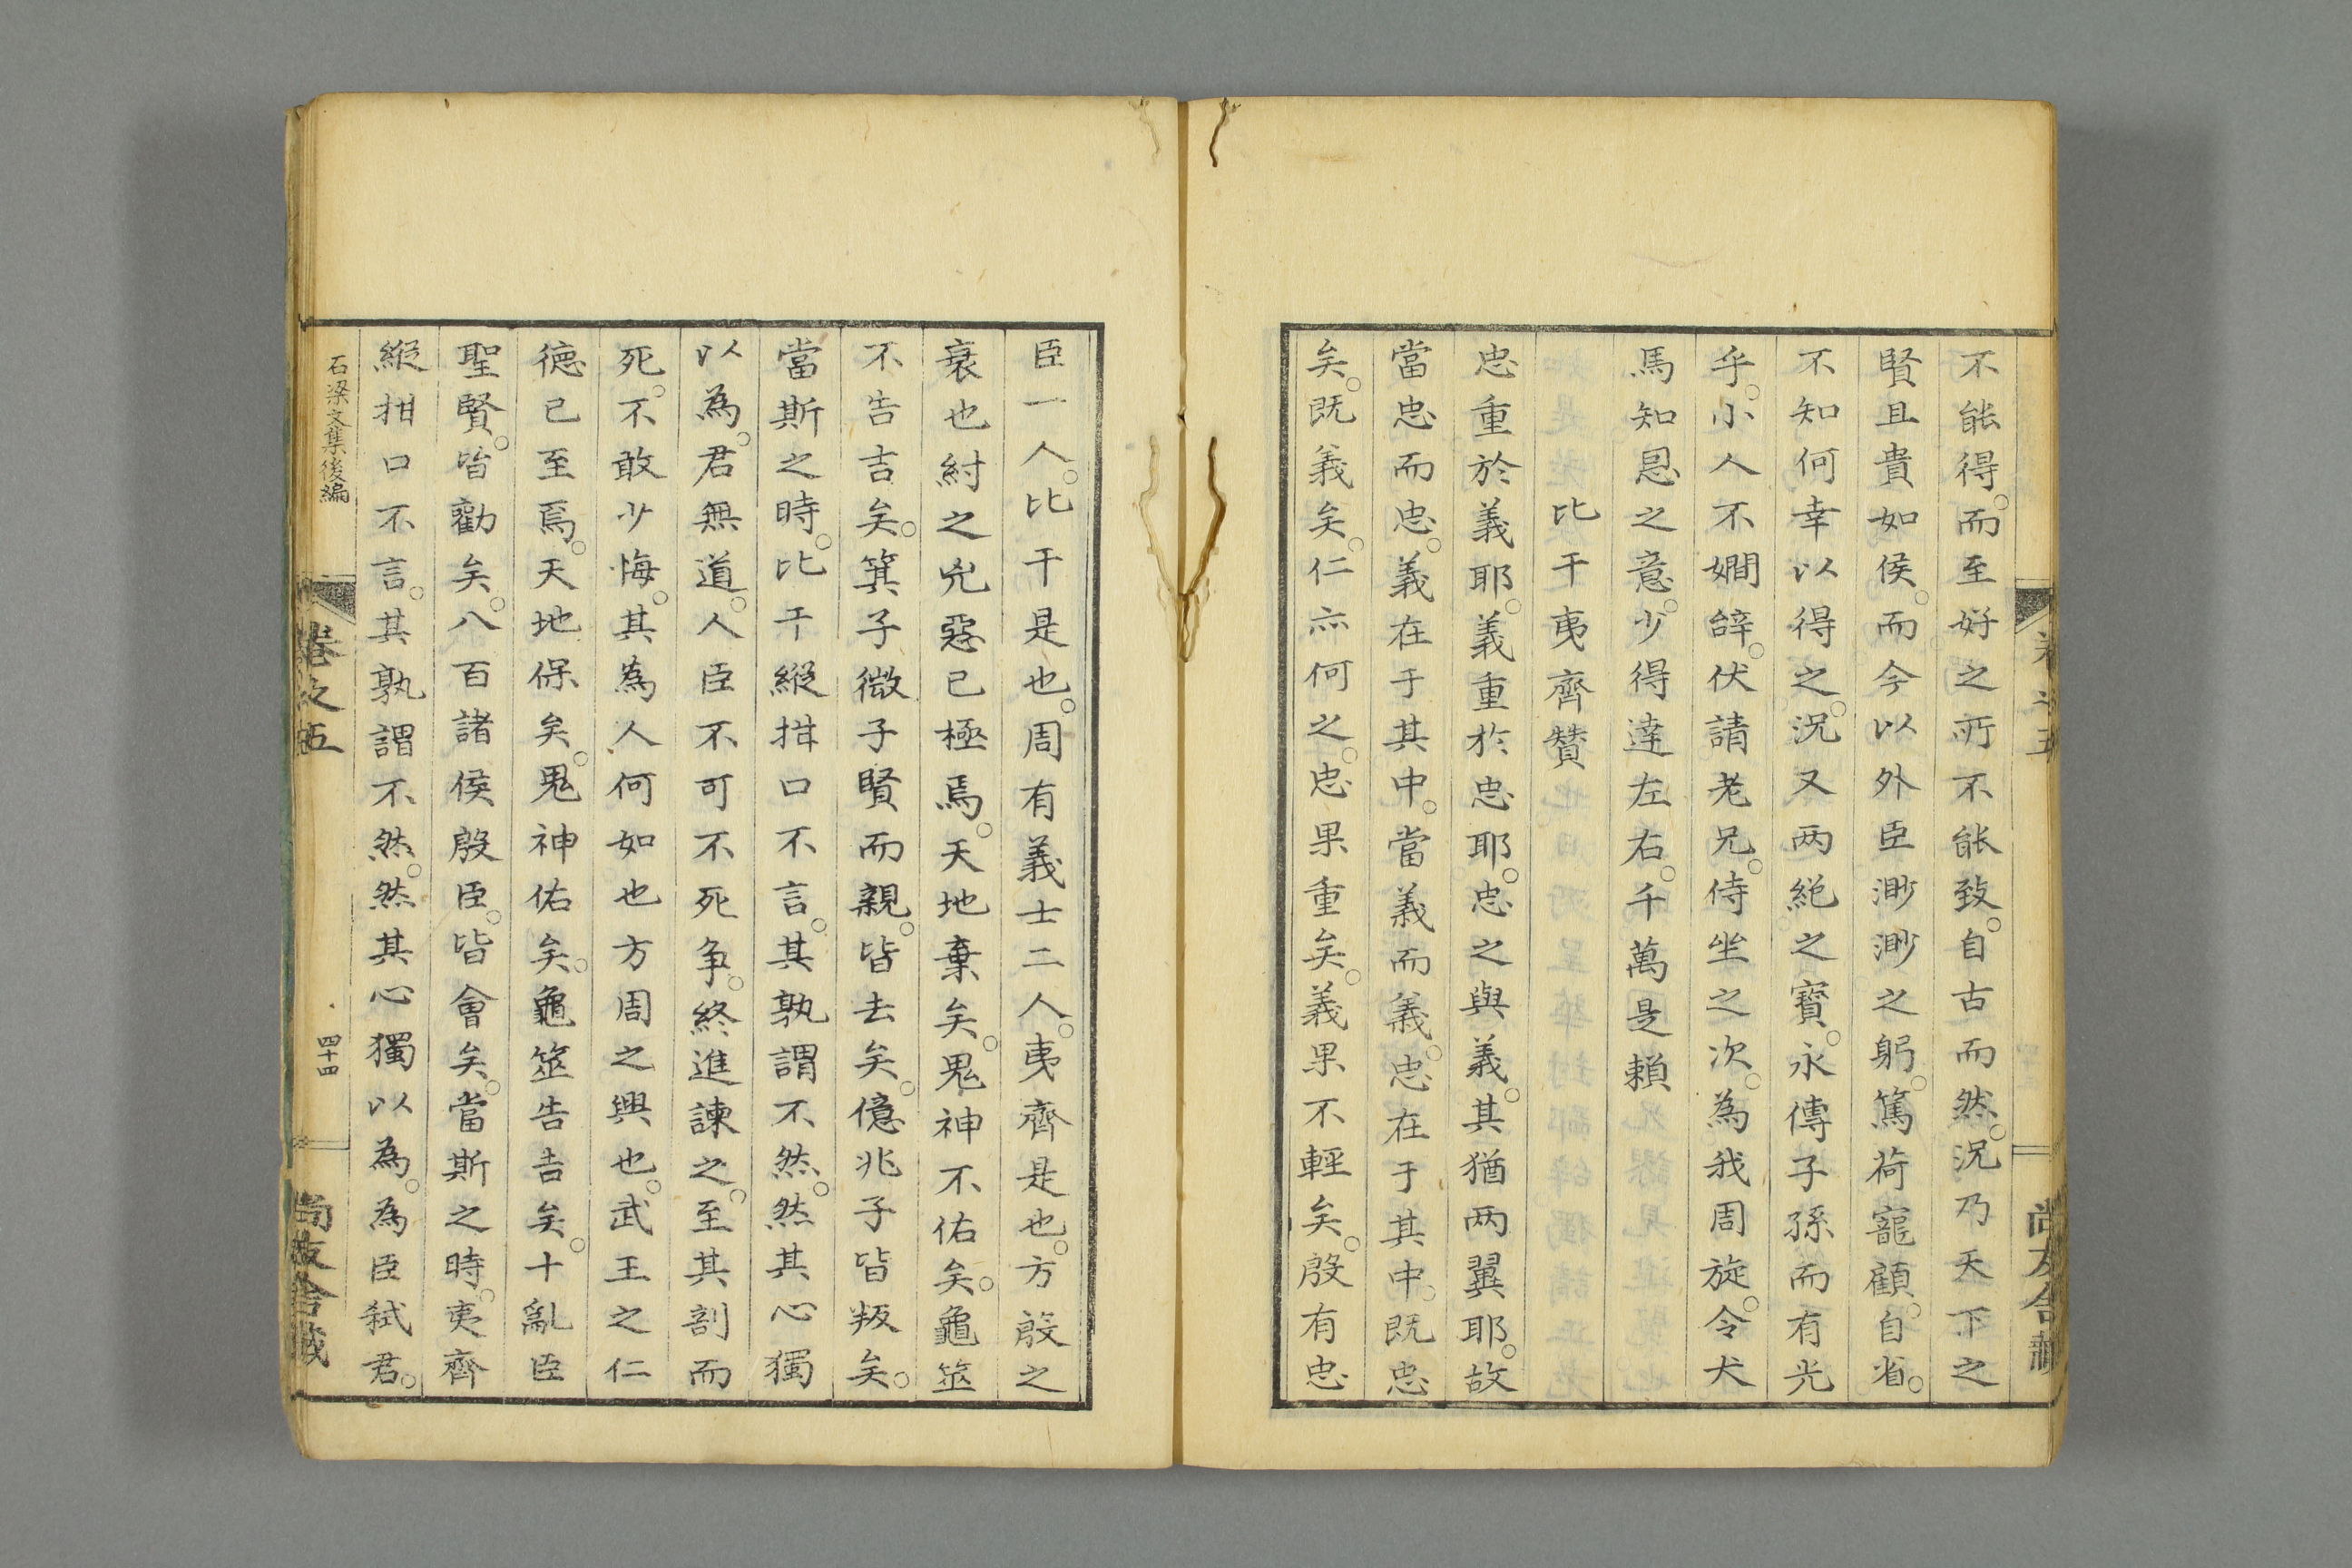 不能得。而至好之所不能致。自古而然。況乃天下之
賢且貴如侯。而今以外臣渺渺之躬。篤荷寵顧。自省。
不知何幸以得之。況又两絶之寶。永傳子孫而有光
乎。小人不嫺辞。伏請老兄。侍坐之次。為我周旋。令犬
馬知恩之意。少得達左右。千萬是賴
比干夷齊贊
忠重於義耶。義重於忠耶。忠之與義。其猶两翼耶。故
當忠而忠。義在于其中。當義而義。忠在于其中。既忠
矣。既義矣。仁亦何之。忠果重矣。義果不輕矣。殷有忠
臣一人。比干是也。周有義士二人。夷齊是也。方殷之
衰也紂之兇惡已極焉。天地棄矣。鬼神不佑矣。龜筮
不告吉矣。箕子微子賢而親。皆去矣。億兆子皆叛矣。
當斯之時。比干縱拑口不言。其孰謂不然。然其心獨
以為。君無道。人臣不可不死争。終進諫之。至其剖而
死。不敢少悔。其為人何如也方周之興也。武王之仁
德已至焉。天地保矣。鬼神佑矣。龜筮告吉矣。十亂臣
聖賢。皆勸矣。八百諸侯殷臣。皆會矣。當斯之時。夷齊
縱拑口不言。其孰謂不然。然其心獨以為。為臣弑君。
石梁文集後編
卷之五
四十四
尚友舎藏